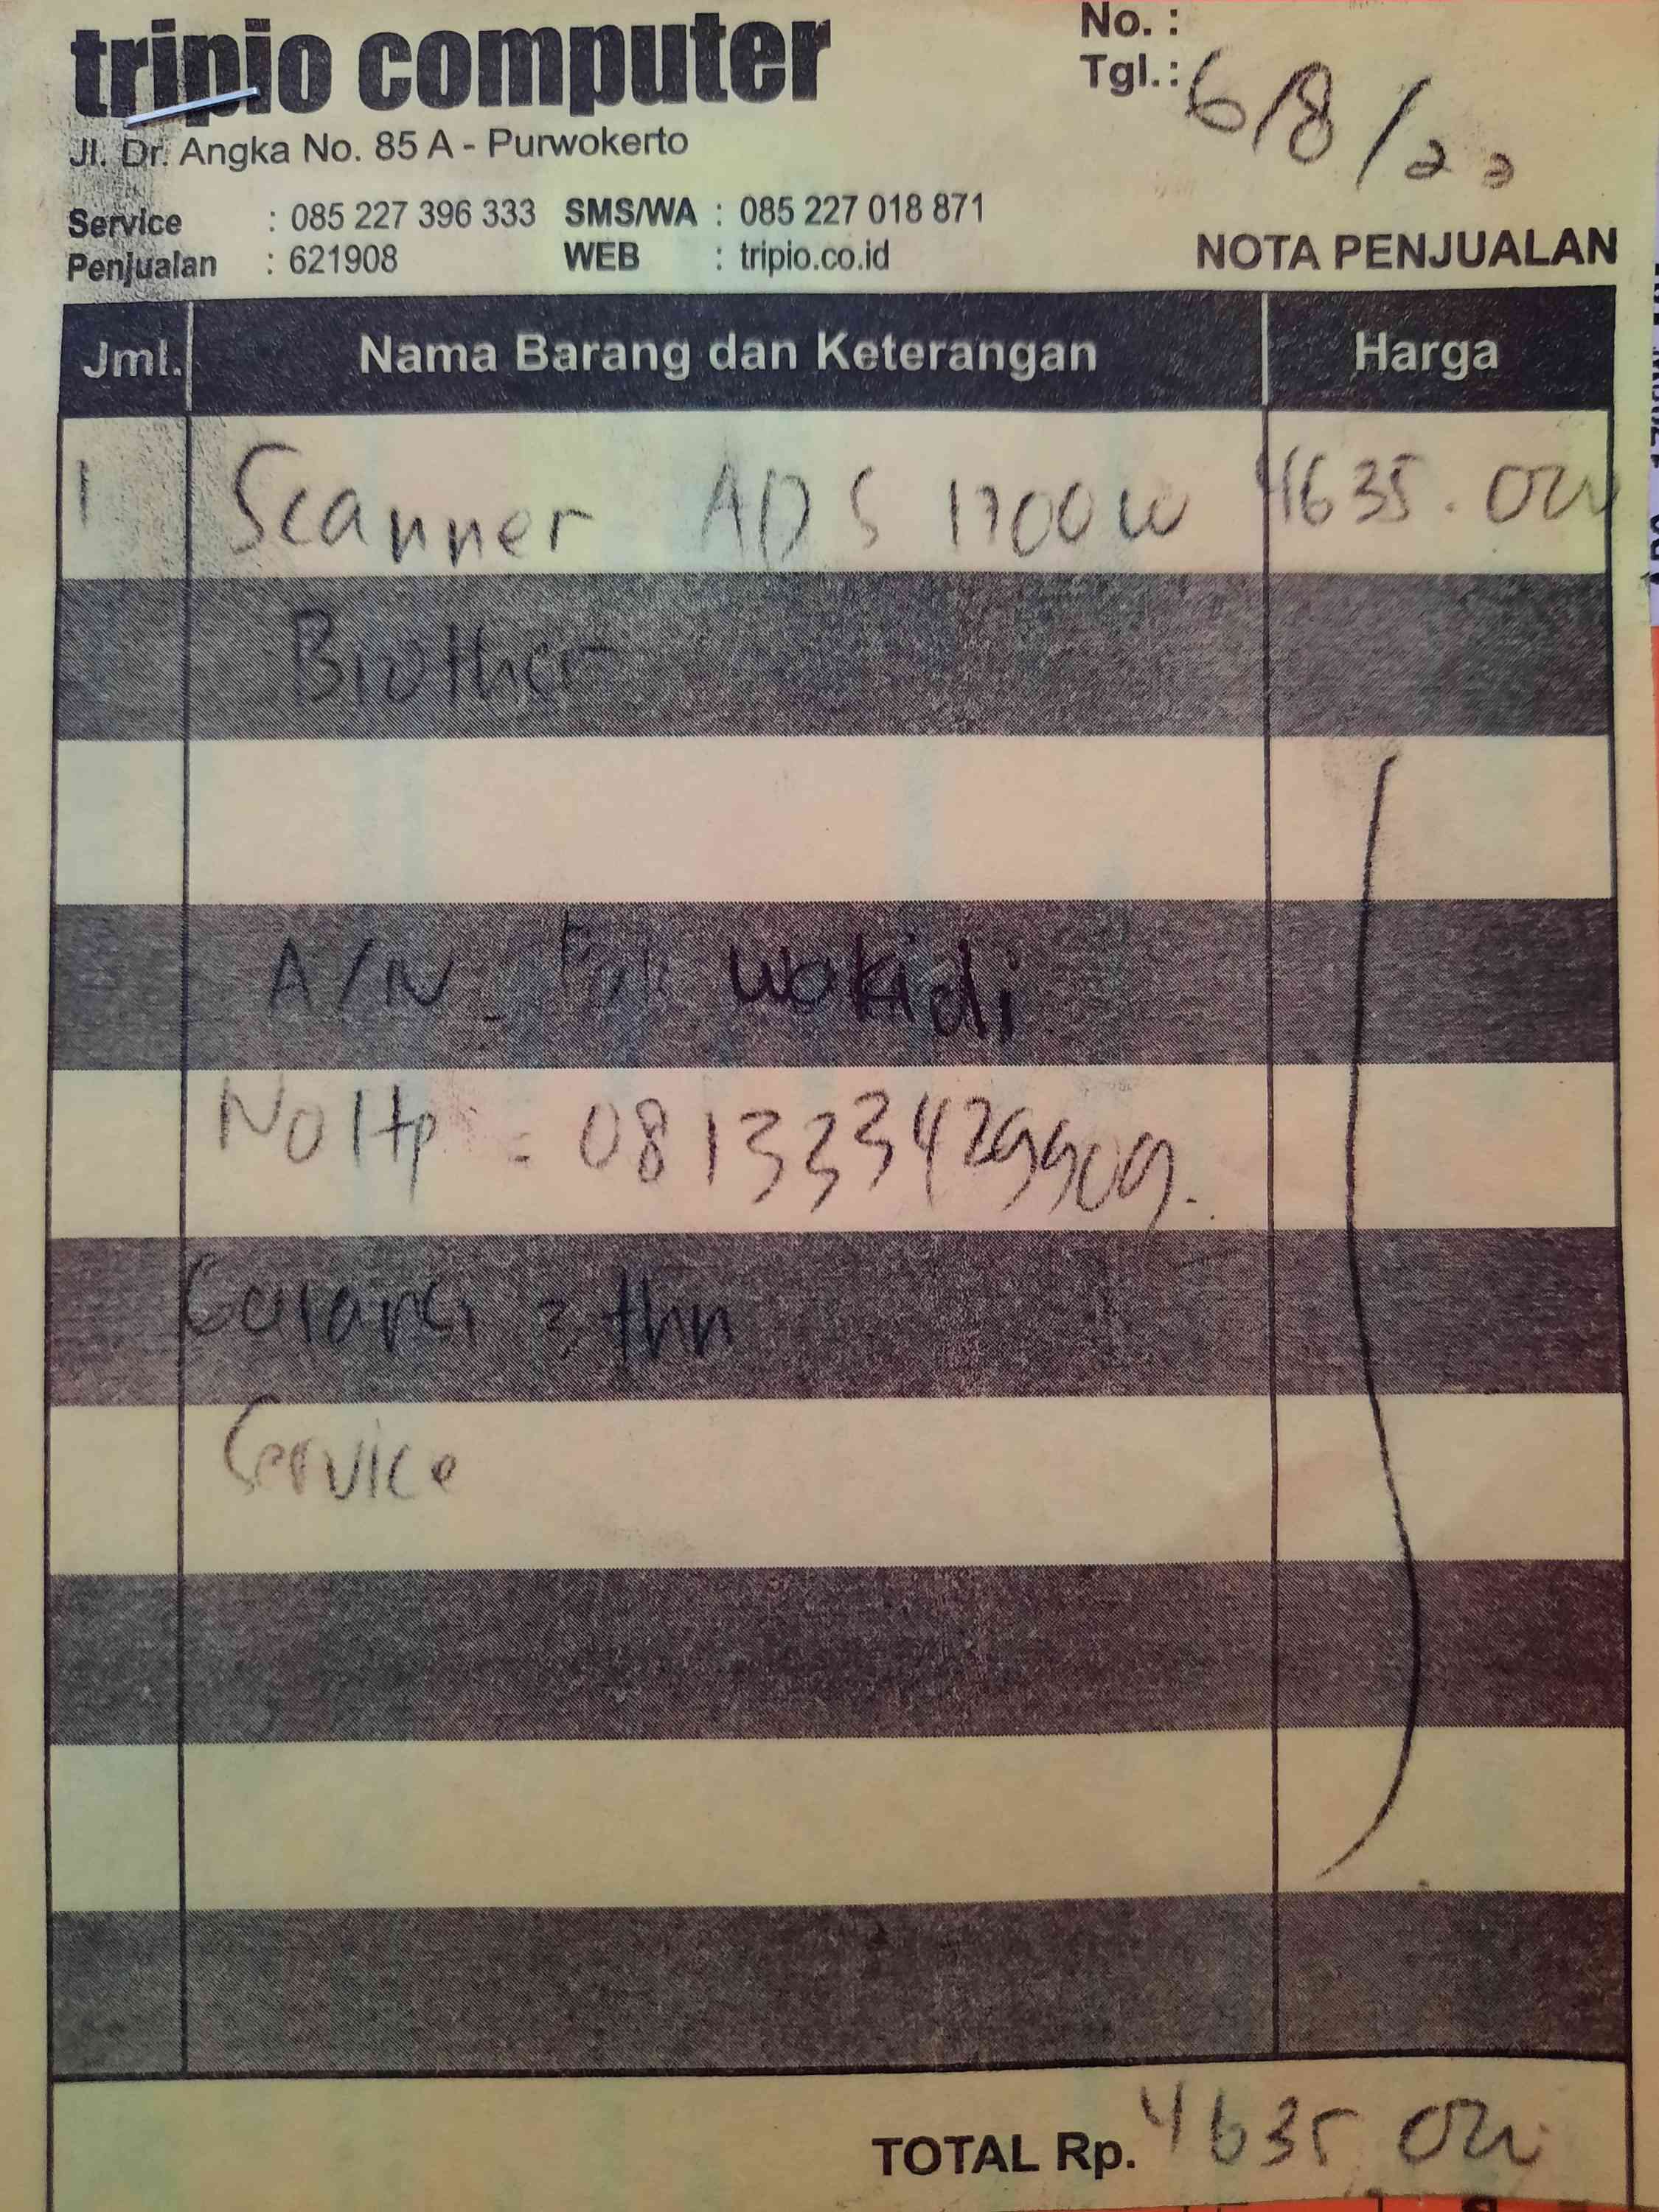 tripio computer
Jl. Dr. Angka No. 85 A - Purwokerto
No. :
Tgl.: 6/8/22
Service : 085 227 396 333 SMS/WA : 085 227 018 871
Penjualan : 621908 WEB : tripio.co.id
NOTA PENJUALAN
Jml. Nama Barang dan Keterangan Harga
1 Scanner ADS 1700 W 4635.000
Brother
A/N Pak wokidi
No Hp = 0813334299909.
Garansi 3 thn
Service
TOTAL Rp. 4635 000